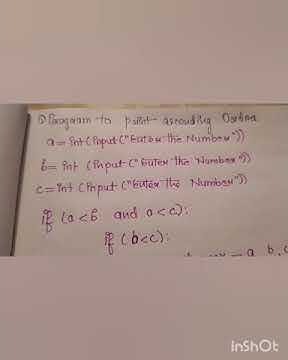 ① Program to print ascending Order
a = int(input("Enter the Number"))
b = int (input ("Enter the Number"))
c = int (input ("Enter the Number"))
if (a<b and a<c):
if (b<c):
a, b, c
InShOt